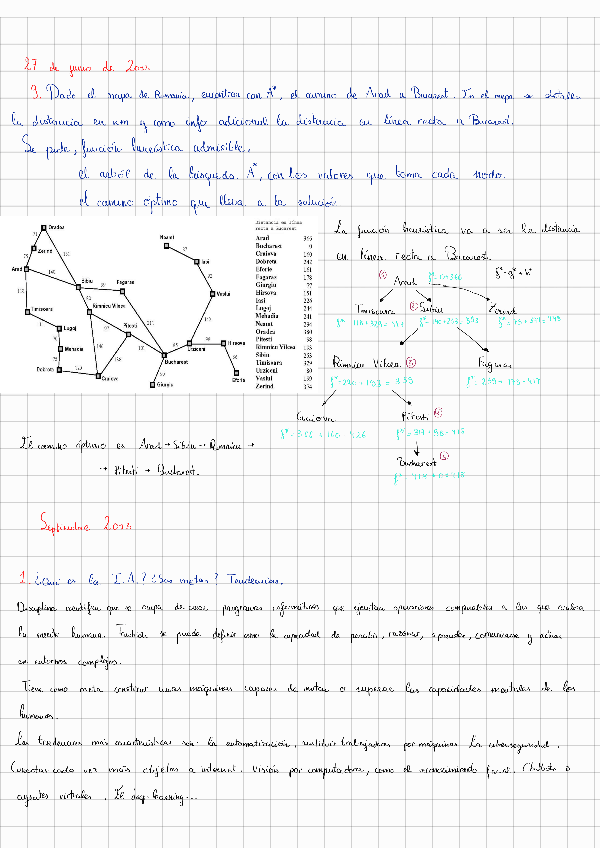 27 de junio de 2022
3. Dado el mapa de Rumanía, encontrar con A*, el camino de Arad a Bucarest. En el mapa se detalla
la distancia en km y como info adicional la distancia en línea recta a Bucarest.
Se pide, función heurística admisible,
el árbol de la búsqueda A*, con los valores que toma cada nodo.
el camino óptimo que lleva a la solución
Oradea
71
Zerind
75
151
Arad
140
118
Sibiu
99
Fagaras
80
Rimnicu Vilcea
Timisoara
111
Lugoj
70
Mehadia
75
Dobreta
120
Craiova
146
138
97
Pitesti
211
101
Bucharest
90
Giurgiu
85
Urziceni
Hirsova
86
Eforie
Neamt
87
Iasi
92
Vaslui
142
98
Distancia en línea
recta a Bucarest
Arad 366
Bucharest 0
Craiova 160
Dobreta 242
Eforie 161
Fagaras 178
Giurgiu 77
Hirsova 151
Iasi 226
Lugoj 244
Mehadia 241
Neamt 234
Oradea 380
Pitesti 98
Rimnicu Vilcea 193
Sibiu 253
Timisoara 329
Urziceni 80
Vaslui 199
Zerind 374
La función heurística va a ser la distancia
en línea recta a Bucarest.
(1) Arad f*=0+366
f*=g*+h*
Timisoara (2) Sibiu Zerind
f*=118+329=447 f*=140+253=393 f*=75+374=449
Rimnicu Vilcea (3) Fagaras
f*=220+193=413 f*=239+178=417
Craiova Pitesti (4)
Bucharest (5)
f*=418+0=418
El camino óptimo es Arad → Sibiu → Rimnicu →
→ Pitesti → Bucharest.
Septiembre
1. ¿Qué es la I.A.? ¿Sus metas? Tendencias.
Disciplina científica que se ocupa de crear programas informáticos que ejecutan operaciones comparables a las que realiza
la mente humana. También se puede definir como la capacidad de percibir, razonar, aprender, comunicarse y actuar
en entornos complejos.
Tiene como meta construir unas máquinas capaces de imitar o superar las capacidades mentales de los
humanos.
Las tendencias más características son: la automatización, sustituir trabajadores por máquinas. La ciberseguridad.
Conectar cada vez más objetos a internet. Visión por computadora, como el reconocimiento facial. Chatbots o
agentes virtuales. El deep learning...